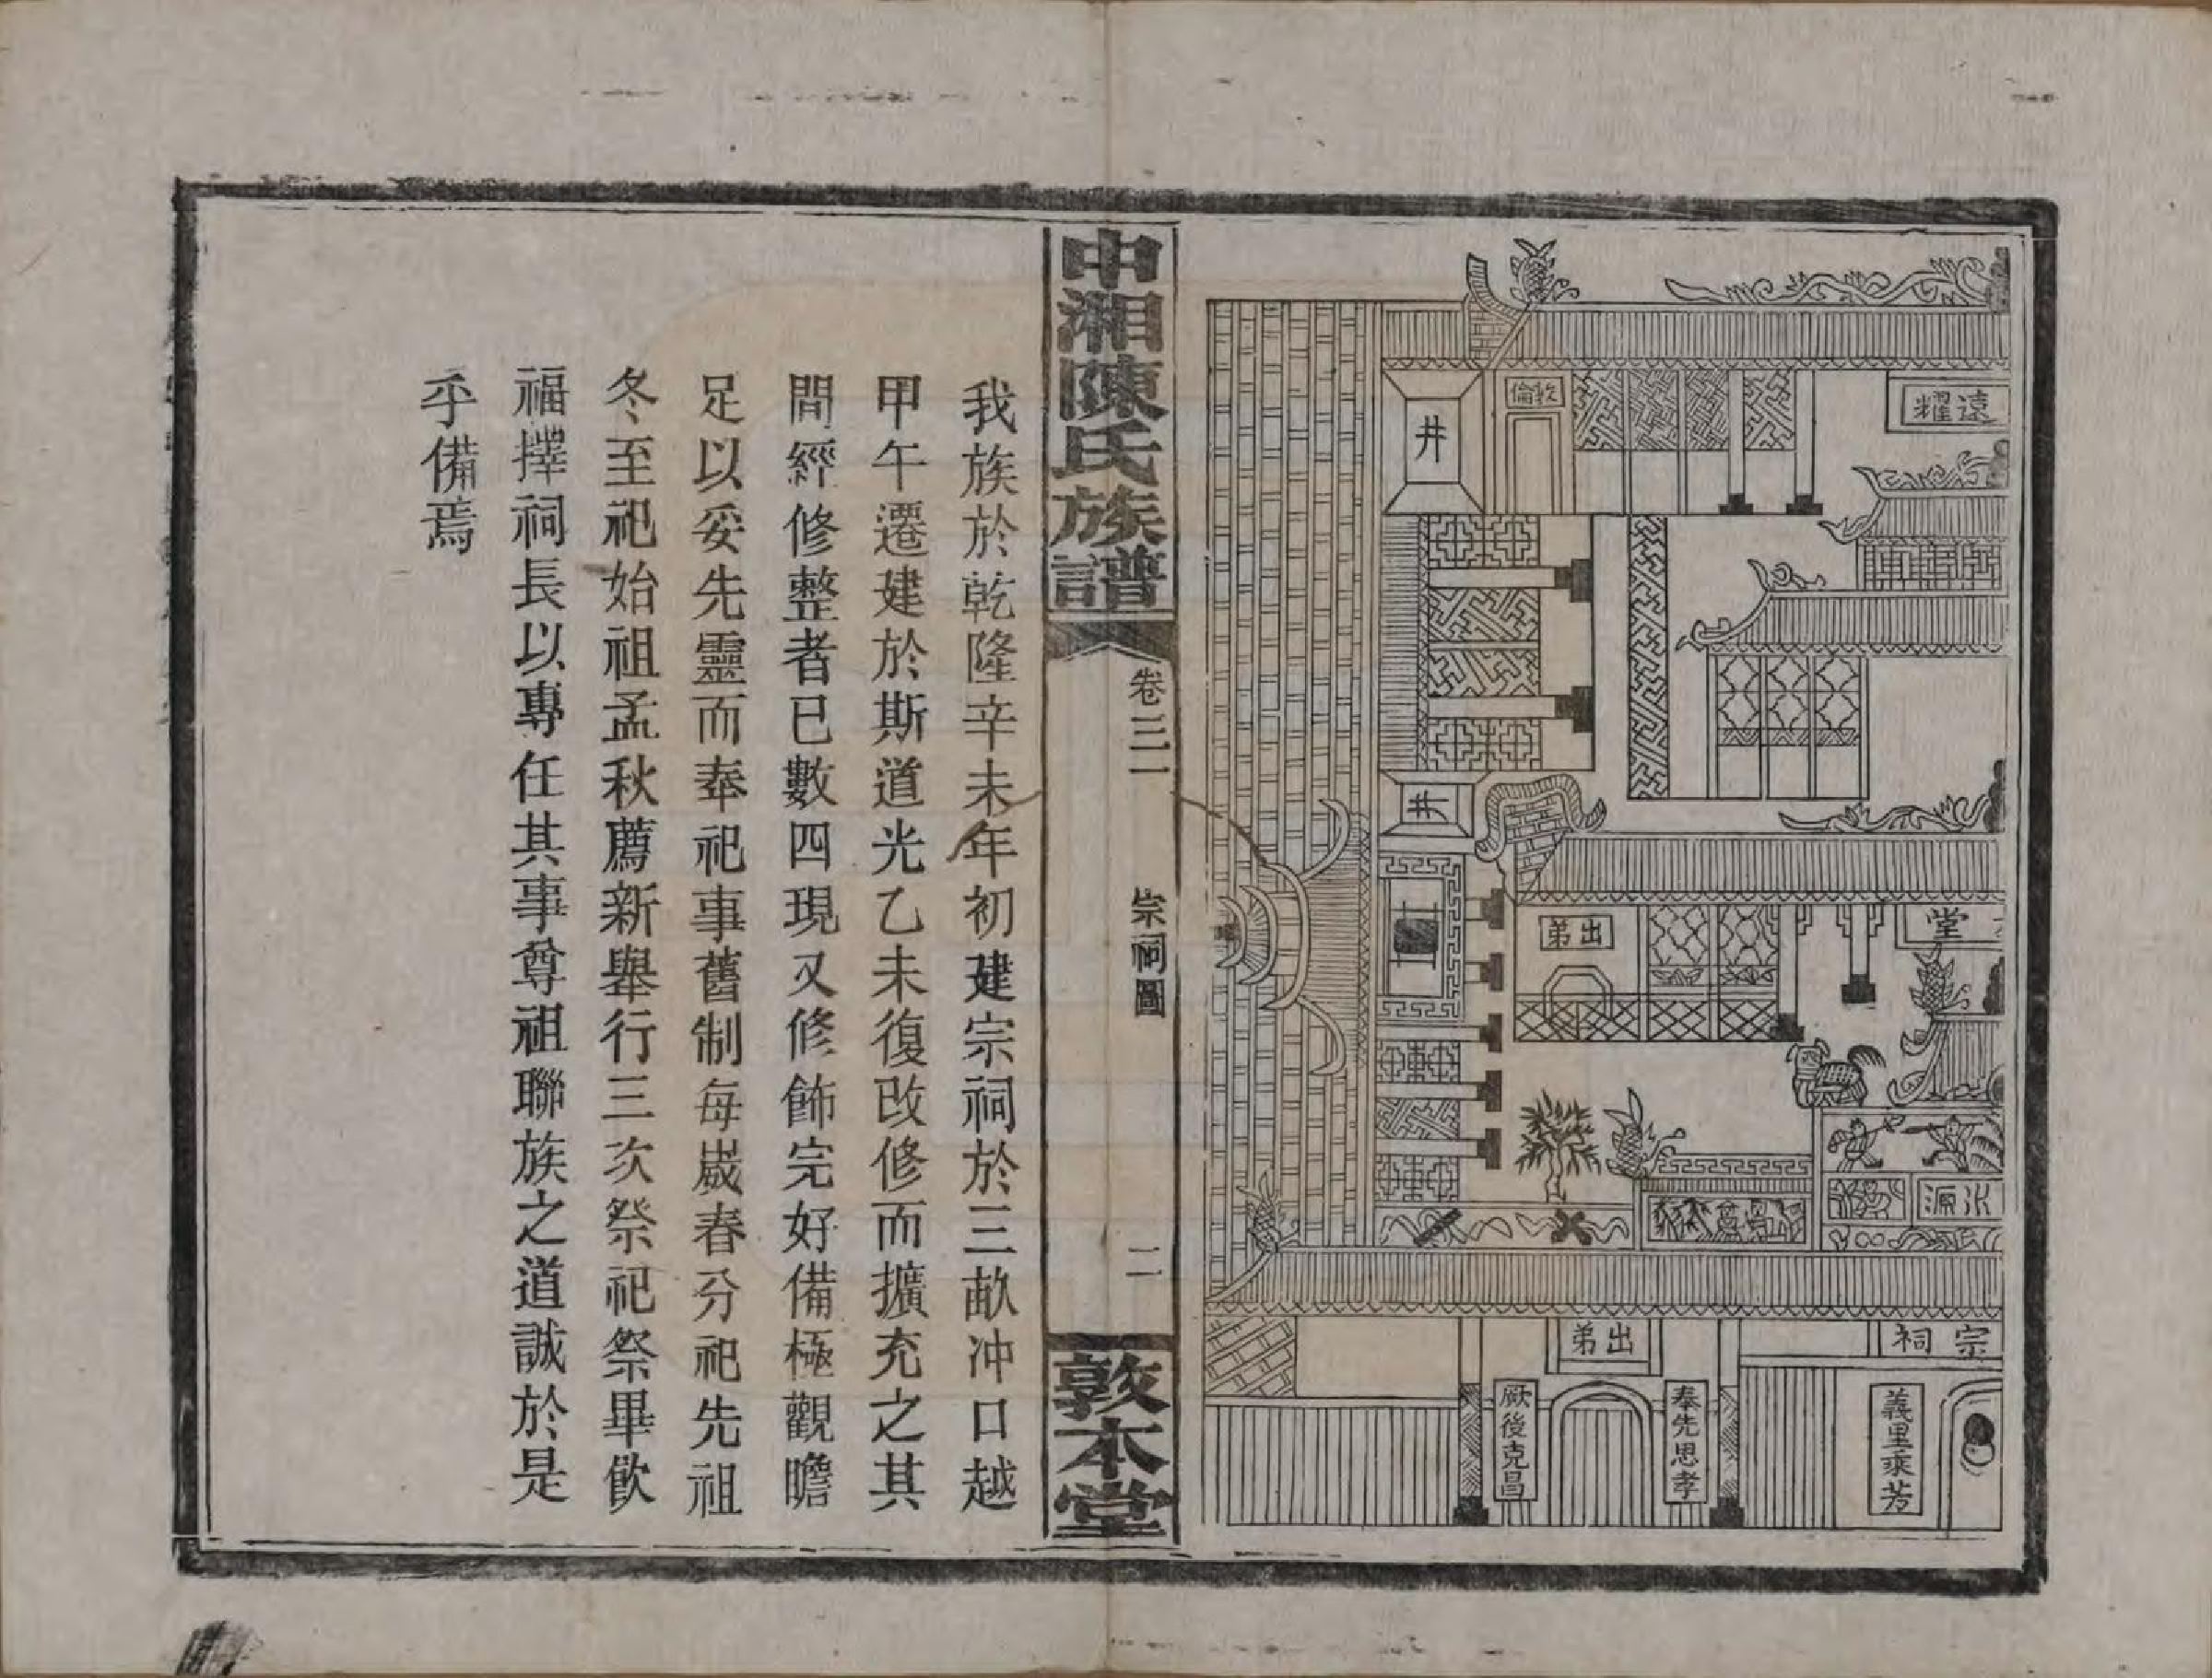 遠耀
敦倫
井
井
堂
出弟
沂源
宗祠
出弟
義里乘芳
奉先思孝
厥後克昌
中湘陳氏族譜
卷三一
宗祠圖
二
敦本堂
我族於乾隆辛未年初建宗祠於三畝冲口越
甲午遷建於斯道光乙未復改修而擴充之其
間經修整者已數四現又修飾完好備極觀瞻
足以妥先靈而奉祀事舊制每歲春分祀先祖
冬至祀始祖孟秋薦新舉行三次祭祀祭畢飲
福擇祠長以專任其事尊祖聯族之道誠於是
乎備焉